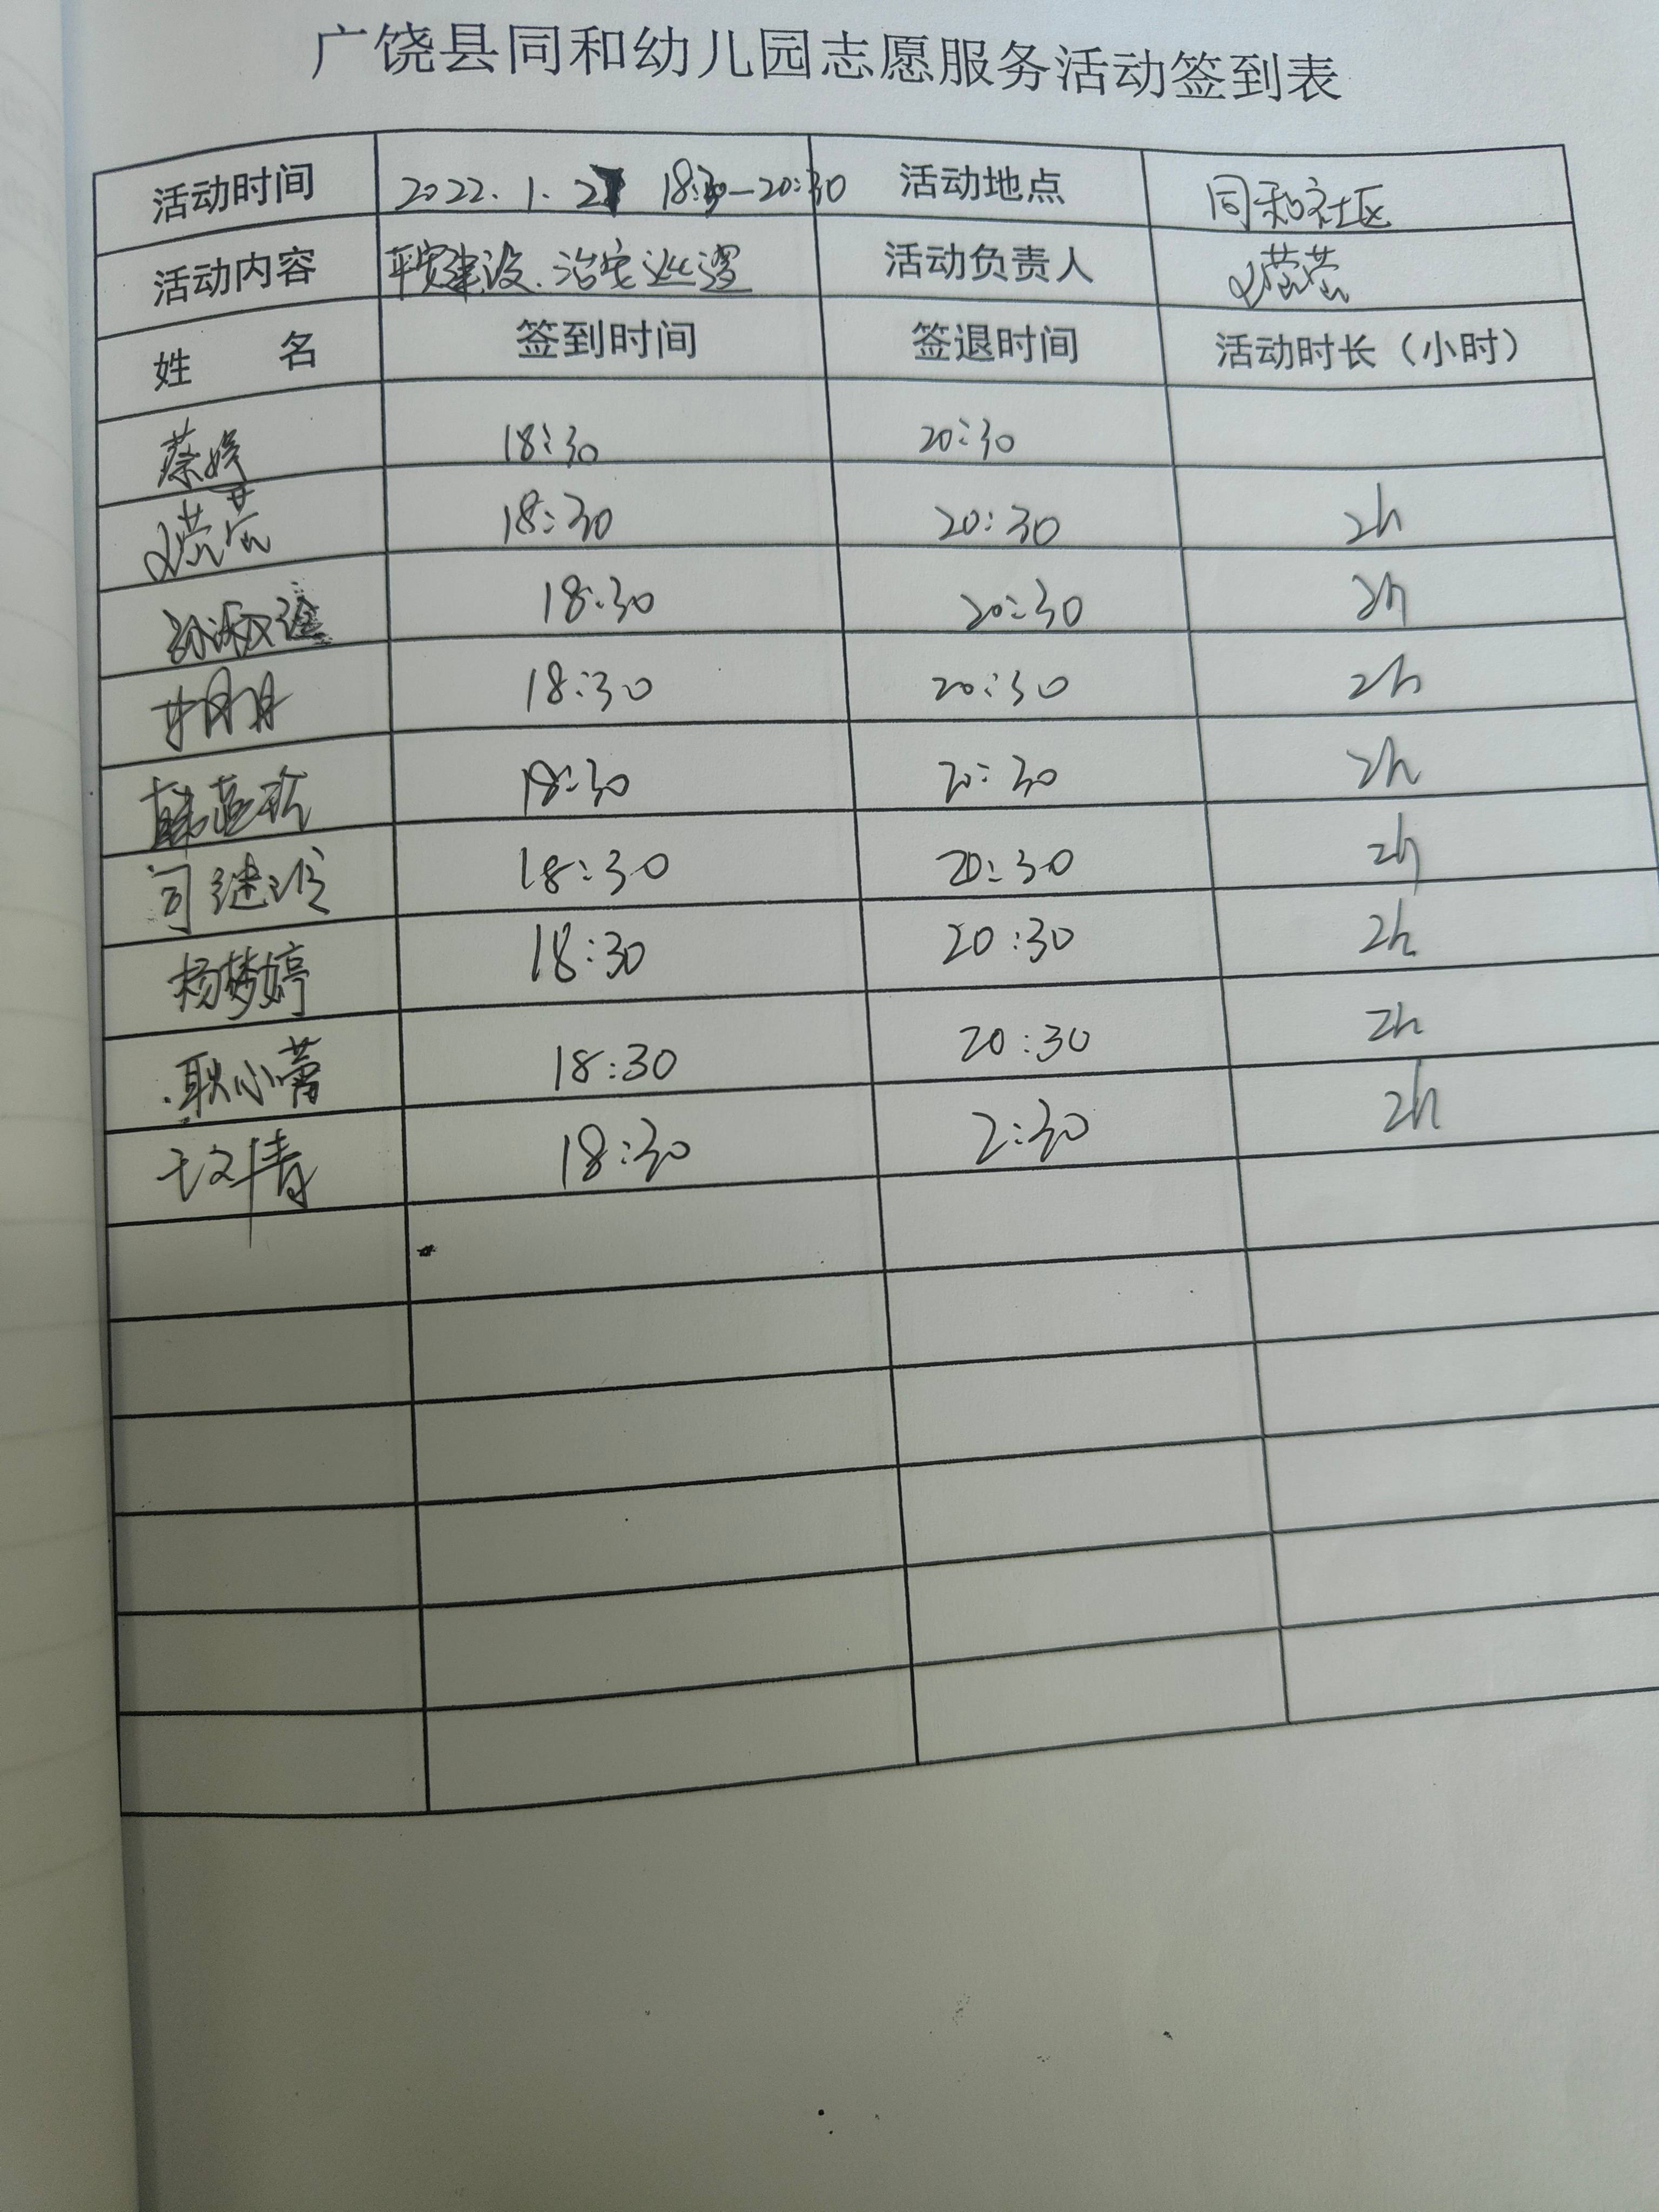 广饶县同和幼儿园志愿服务活动签到表
活动时间 2022.1.27 18:30—20:30 活动地点 同和社区
活动内容 平安建设、治安巡逻 活动负责人
姓 名 签到时间 签退时间 活动时长（小时）
蔡婷 18:30 20:30
18:30 20:30 2h
18:30 20:30 2h
18:30 20:30 2h
18:30 20:30 2h
18:30 20:30 2h
杨梦婷 18:30 20:30 2h
耿小蕾 18:30 20:30 2h
18:30 2:30 2h